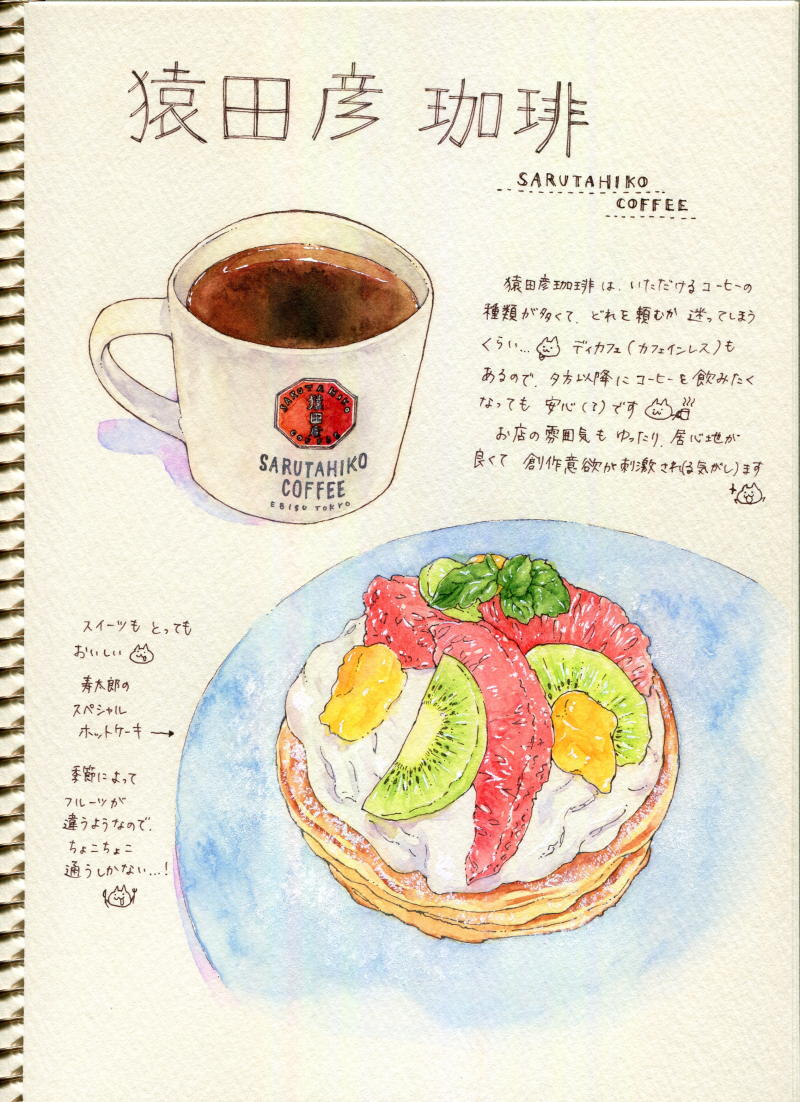 猿田彦 珈琲
SARUTAHIKO
COFFEE
猿田彦珈琲は、いただけるコーヒーの
種類が多くて、どれを頼むか 迷ってしまう
くらい… ディカフェ(カフェインレス)も
あるので、夕方以降にコーヒーを飲みたく
なっても 安心(?)です
お店の雰囲気も ゆったり、居心地が
良くて 創作意欲が刺激され(る気がし)ます
SARUTAHIKO
猿田彦
COFFEE
SARUTAHIKO
COFFEE
EBISU TOKYO
スイーツも とっても
おいしい
寿太郎の
スペシャル
ホットケーキ →
季節によって
フルーツが
違うようなので、
ちょこちょこ
通うしかない…!